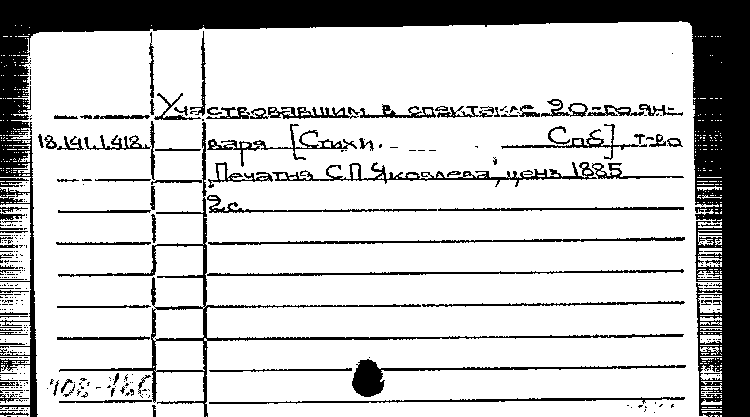 Участвовавшим в спектакле 20-го ян-
18.141.1.418. варя [Стихи. Спб], т-во
„Печатня С.П. Яковлева", ценз 1885
2 с.
408-186